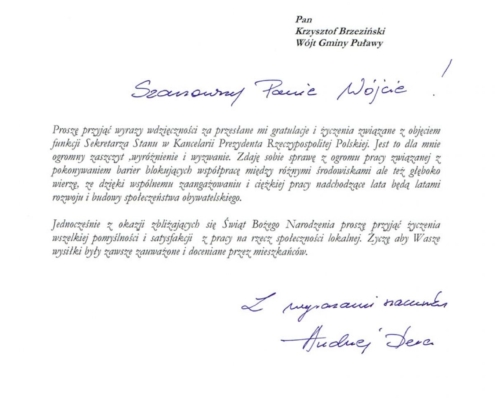 Pan
Krzysztof Brzeziński
Wójt Gminy Puławy
Szanowny Panie Wójcie!
Proszę przyjąć wyrazy wdzięczności za przesłane mi gratulacje i życzenia związane z objęciem
funkcji Sekretarza Stanu w Kancelarii Prezydenta Rzeczypospolitej Polskiej. Jest to dla mnie
ogromny zaszczyt ,wyróżnienie i wyzwanie. Zdaję sobie sprawę z ogromu pracy związanej z
pokonywaniem barier blokujących współpracę między różnymi środowiskami ale też głęboko
wierzę, ze dzięki wspólnemu zaangażowaniu i ciężkiej pracy nadchodzące lata będą latami
rozwoju i budowy społeczeństwa obywatelskiego.
Jednocześnie z okazji zbliżających się Świąt Bożego Narodzenia proszę przyjąć życzenia
wszelkiej pomyślności i satysfakcji z pracy na rzecz społeczności lokalnej. Życzę aby Wasze
wysiłki były zawsze zauważone i doceniane przez mieszkańców.
Z wyrazami szacunku
Andrzej Dera